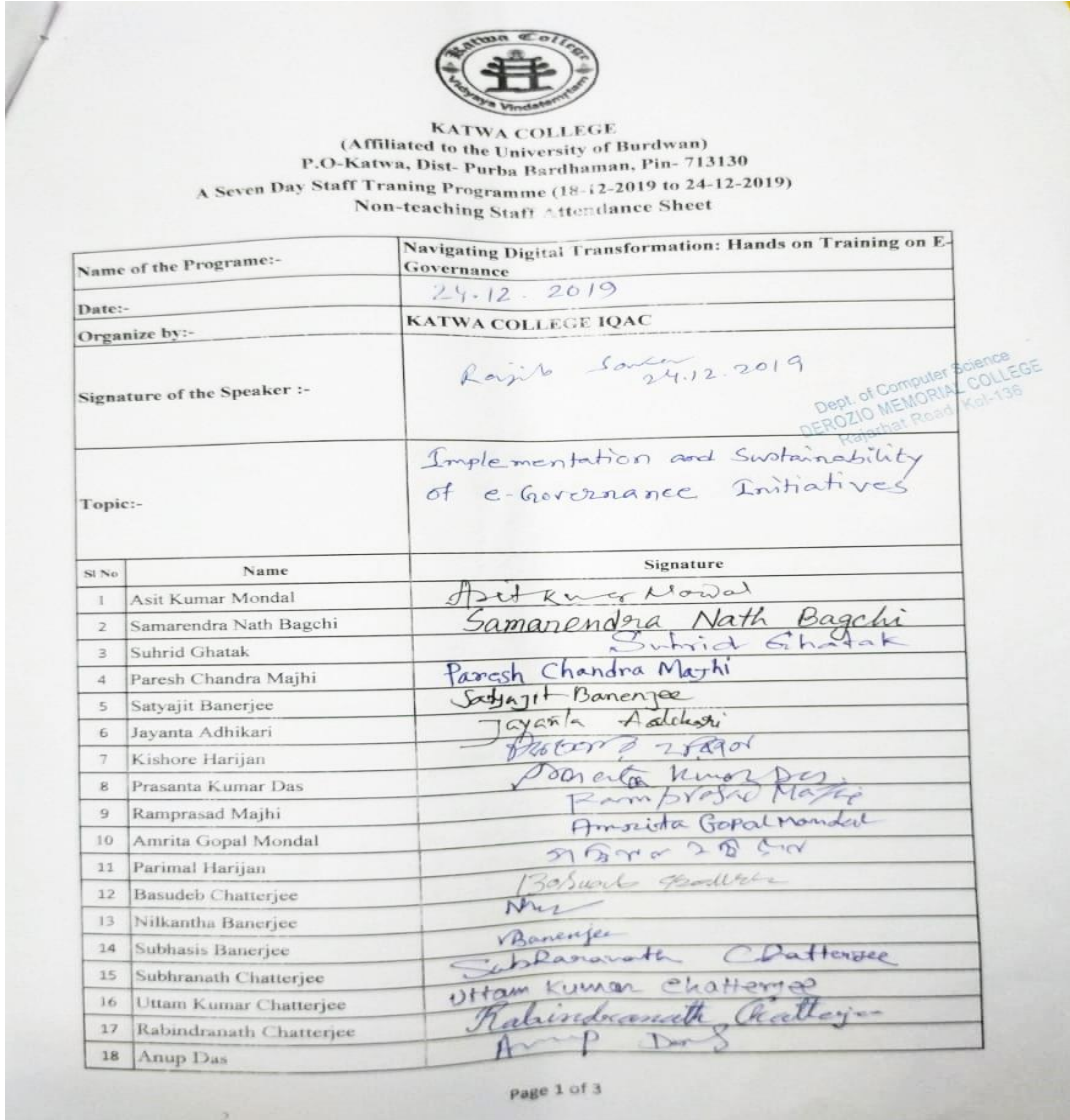 Katwa College
Vidyaya Vindatemrtam
KATWA COLLEGE
(Affiliated to the University of Burdwan)
P.O-Katwa, Dist- Purba Bardhaman, Pin- 713130
A Seven Day Staff Traning Programme (18-12-2019 to 24-12-2019)
Non-teaching Staff Attendance Sheet
Name of the Programe:- Navigating Digital Transformation: Hands on Training on E-
Governance
Date:- 24.12.2019
Organize by:- KATWA COLLEGE IQAC
Signature of the Speaker :- Rajib Sarkar
24.12.2019
Dept. of Computer Science
DEROZIO MEMORIAL COLLEGE
Rajarhat Road, Kol-136
Topic:- Implementation and Sustainability
of e-Governance Initiatives
Sl No Name Signature
1 Asit Kumar Mondal Asit Kumar Mondal
2 Samarendra Nath Bagchi Samarendra Nath Bagchi
3 Suhrid Ghatak Suhrid Ghatak
4 Paresh Chandra Majhi Paresh Chandra Majhi
5 Satyajit Banerjee Satyajit Banerjee
6 Jayanta Adhikari Jayanta Aadikari
7 Kishore Harijan
8 Prasanta Kumar Das Prasanta Kumar Das
9 Ramprasad Majhi Ramprasad Majhi
10 Amrita Gopal Mondal Amrita Gopal Mondal
11 Parimal Harijan
12 Basudeb Chatterjee
13 Nilkantha Banerjee
14 Subhasis Banerjee Banerjee
15 Subhranath Chatterjee Subhranath Chatterjee
16 Uttam Kumar Chatterjee Uttam Kumar Chatterjee
17 Rabindranath Chatterjee Rabindranath Chatterjee
18 Anup Das Anup Das
Page 1 of 3